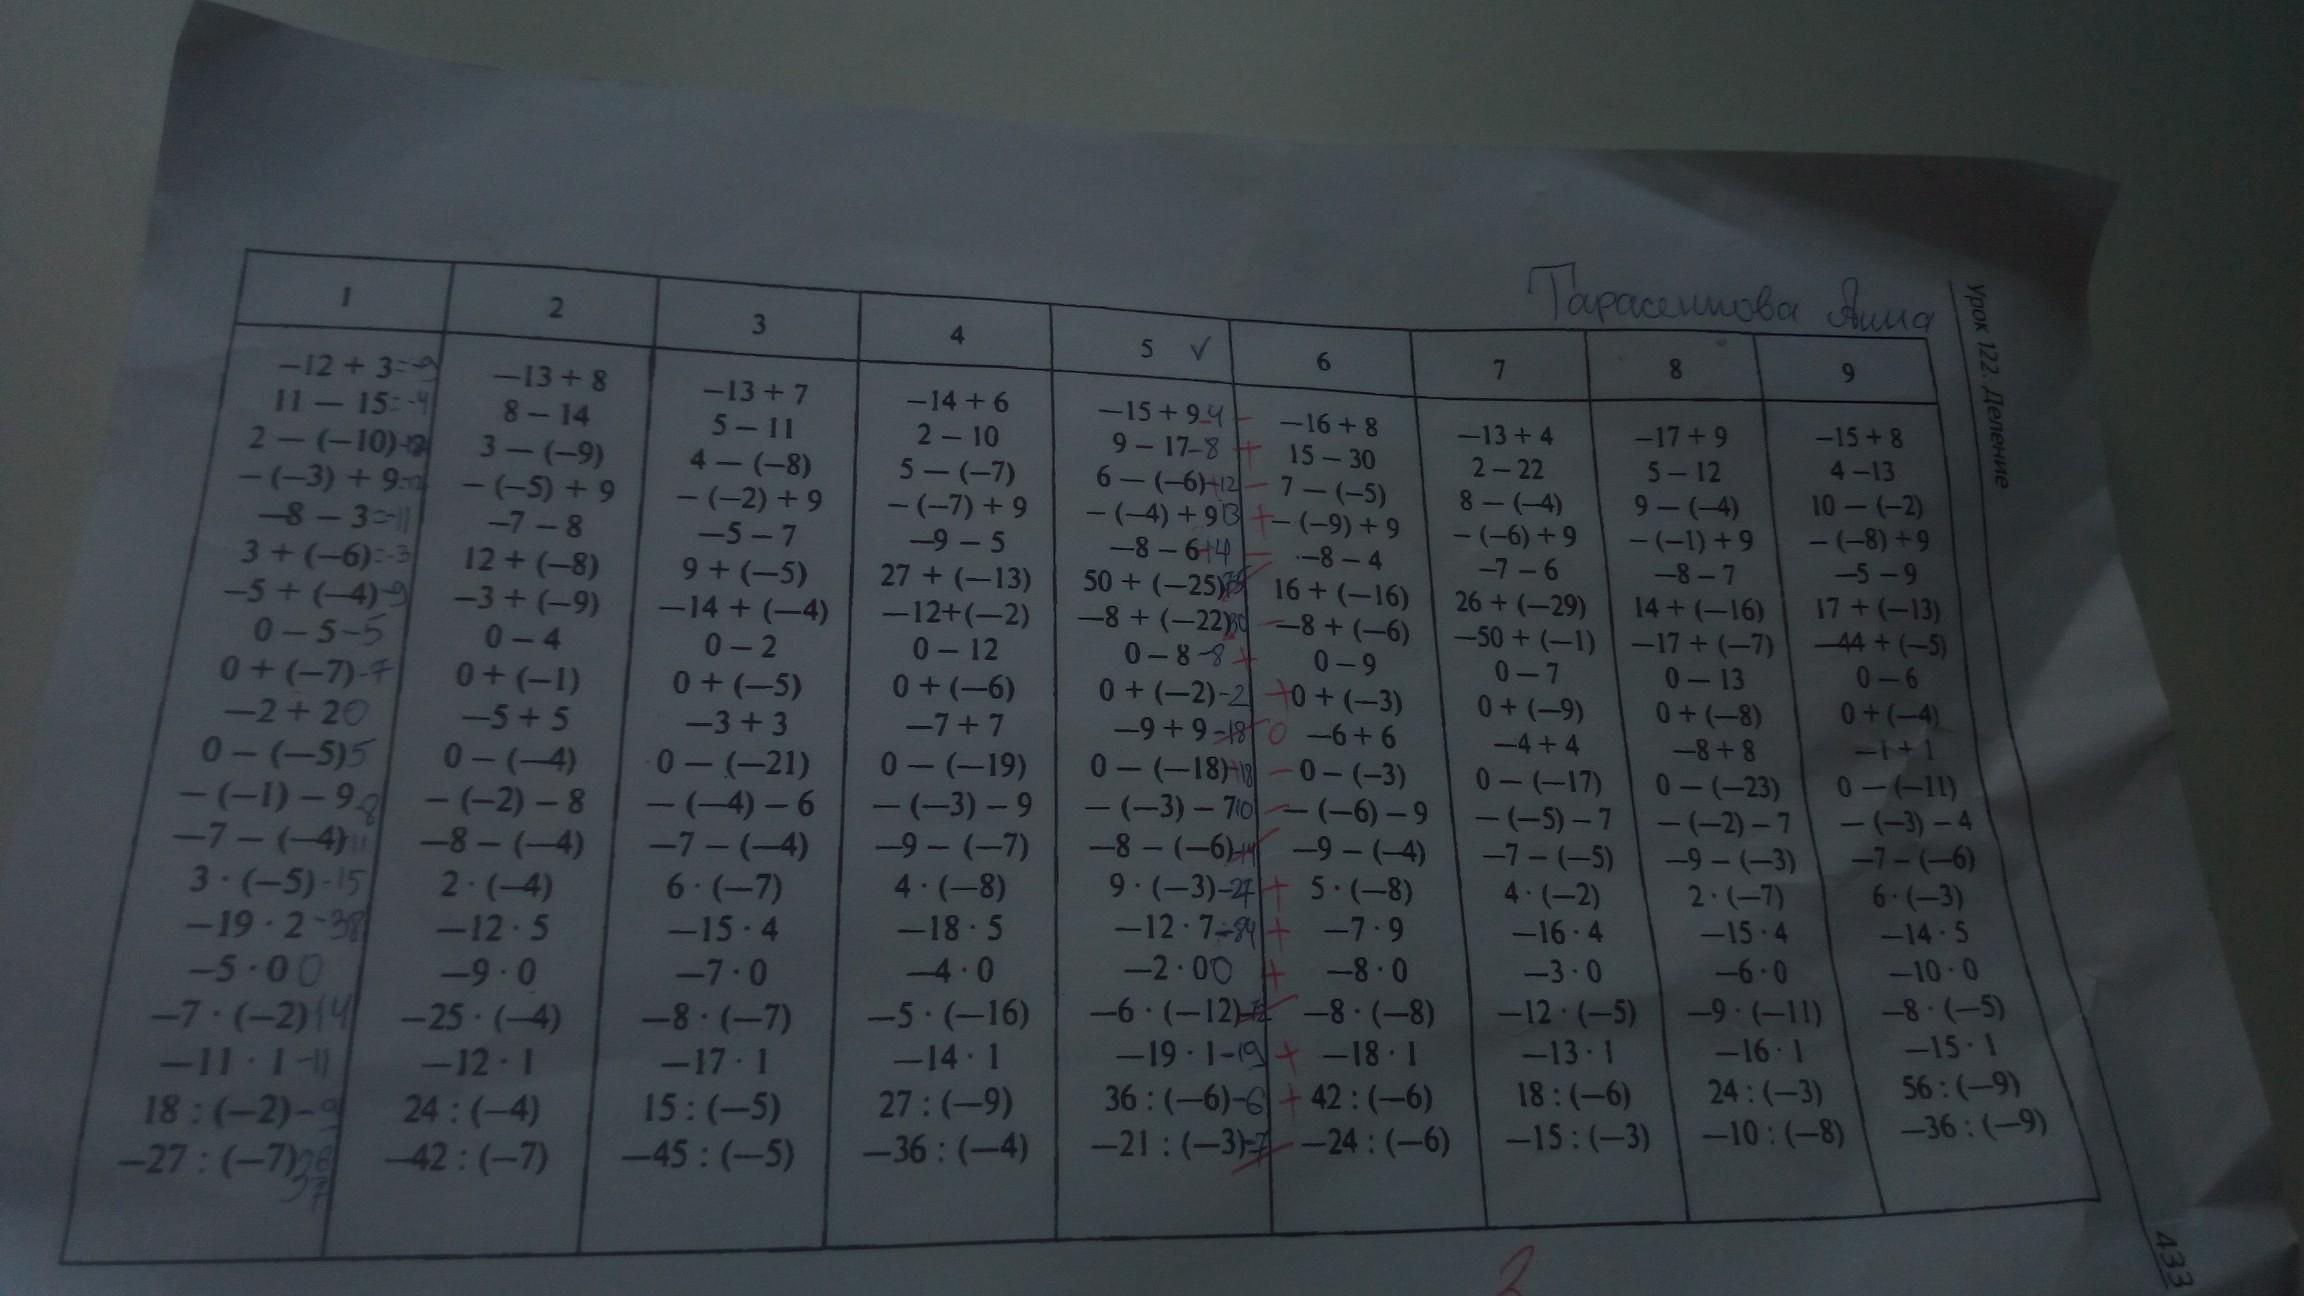 Тарасенкова Анна
Урок 122. Деление
1 2 3 4 5 ✓ 6 7 8 9
−12 + 3 = −9
11 − 15 = −4
2 − (−10)
− (−3) + 9
−8 − 3 = −11
3 + (−6) = −3
−5 + (−4) −9
0 − 5 −5
0 + (−7) −7
−2 + 2 0
0 − (−5) 5
− (−1) − 9 −8
−7 − (−4) 11
3 · (−5) −15
−19 · 2 −38
−5 · 0 0
−7 · (−2) 14
−11 · 1 −11
18 : (−2) −9
−27 : (−7)
−13 + 8
8 − 14
3 − (−9)
− (−5) + 9
−7 − 8
12 + (−8)
−3 + (−9)
0 − 4
0 + (−1)
−5 + 5
0 − (−4)
− (−2) − 8
−8 − (−4)
2 · (−4)
−12 · 5
−9 · 0
−25 · (−4)
−12 · 1
24 : (−4)
−42 : (−7)
−13 + 7
5 − 11
4 − (−8)
− (−2) + 9
−5 − 7
9 + (−5)
−14 + (−4)
0 − 2
0 + (−5)
−3 + 3
0 − (−21)
− (−4) − 6
−7 − (−4)
6 · (−7)
−15 · 4
−7 · 0
−8 · (−7)
−17 · 1
15 : (−5)
−45 : (−5)
−14 + 6
2 − 10
5 − (−7)
− (−7) + 9
−9 − 5
27 + (−13)
−12+(−2)
0 − 12
0 + (−6)
−7 + 7
0 − (−19)
− (−3) − 9
−9 − (−7)
4 · (−8)
−18 · 5
−4 · 0
−5 · (−16)
−14 · 1
27 : (−9)
−36 : (−4)
−15 + 9 −4 −
9 − 17 −8 +
6 − (−6) +12 −
− (−4) + 9 13 +
−8 − 6 +4 −
50 + (−25)
−8 + (−22) 30 −
0 − 8 −8 +
0 + (−2) −2 +
−9 + 9 −18 0
0 − (−18) +18 −
− (−3) − 7 10 −
−8 − (−6)
9 · (−3) −27 +
−12 · 7 −84 +
−2 · 0 0 +
−6 · (−12)
−19 · 1 −19 +
36 : (−6) −6 +
−21 : (−3) −7
−16 + 8
15 − 30
7 − (−5)
− (−9) + 9
−8 − 4
16 + (−16)
−8 + (−6)
0 − 9
0 + (−3)
−6 + 6
0 − (−3)
− (−6) − 9
−9 − (−4)
5 · (−8)
−7 · 9
−8 · 0
−8 · (−8)
−18 · 1
42 : (−6)
−24 : (−6)
−13 + 4
2 − 22
8 − (−4)
− (−6) + 9
−7 − 6
26 + (−29)
−50 + (−1)
0 − 7
0 + (−9)
−4 + 4
0 − (−17)
− (−5) − 7
−7 − (−5)
4 · (−2)
−16 · 4
−3 · 0
−12 · (−5)
−13 · 1
18 : (−6)
−15 : (−3)
−17 + 9
5 − 12
9 − (−4)
− (−1) + 9
−8 − 7
14 + (−16)
−17 + (−7)
0 − 13
0 + (−8)
−8 + 8
0 − (−23)
− (−2) − 7
−9 − (−3)
2 · (−7)
−15 · 4
−6 · 0
−9 · (−11)
−16 · 1
24 : (−3)
−10 : (−8)
−15 + 8
4 −13
10 − (−2)
− (−8) + 9
−5 − 9
17 + (−13)
−44 + (−5)
0 − 6
0 + (−4)
−1 + 1
0 − (−11)
− (−3) − 4
−7 − (−6)
6 · (−3)
−14 · 5
−10 · 0
−8 · (−5)
−15 · 1
56 : (−9)
−36 : (−9)
433
2